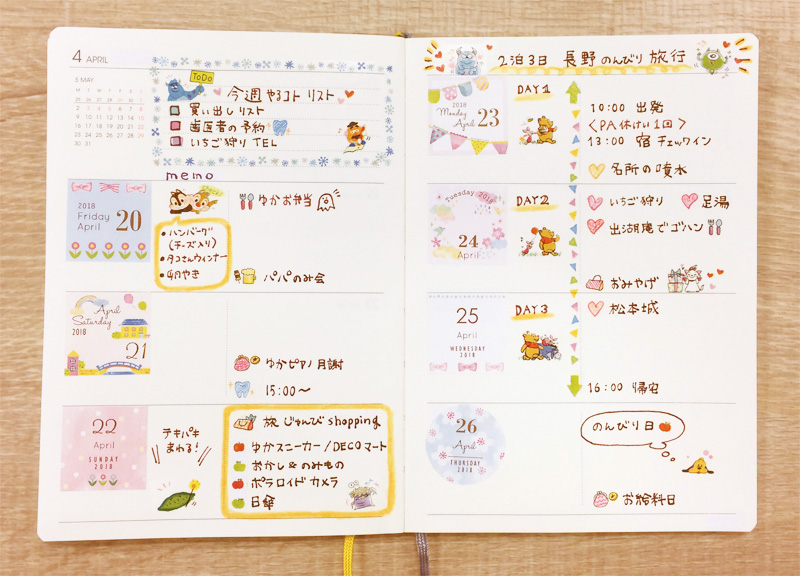 4 APRIL
5 MAY
M T W T F S S
ToDo
今週やるコト リスト
買い出しリスト
歯医者の予約
いちご狩り TEL
memo
2018
Friday
April 20
ゆかお弁当
・ハンバーグ
(チーズ入り)
・タコさんウィンナー
・卵やき
パパのみ会
April
Saturday
2018
21
ゆかピアノ月謝
15:00～
22
April
SUNDAY
2018
テキパキ
まわる!
旅じゅんびshopping
ゆかスニーカー/DECOマート
おかし&のみもの
ポラロイドカメラ
日傘
2泊3日 長野のんびり旅行
2018
Monday
April 23
DAY1
10:00 出発
<PA休けい1回>
13:00 宿チェックイン
名所の噴水
Tuesday 2018
24
April
DAY2
いちご狩り 足湯
出湖庵でゴハン
おみやげ
25
April
WEDNESDAY
2018
DAY3
松本城
16:00 帰宅
26
April
THURSDAY
2018
のんびり日
お給料日